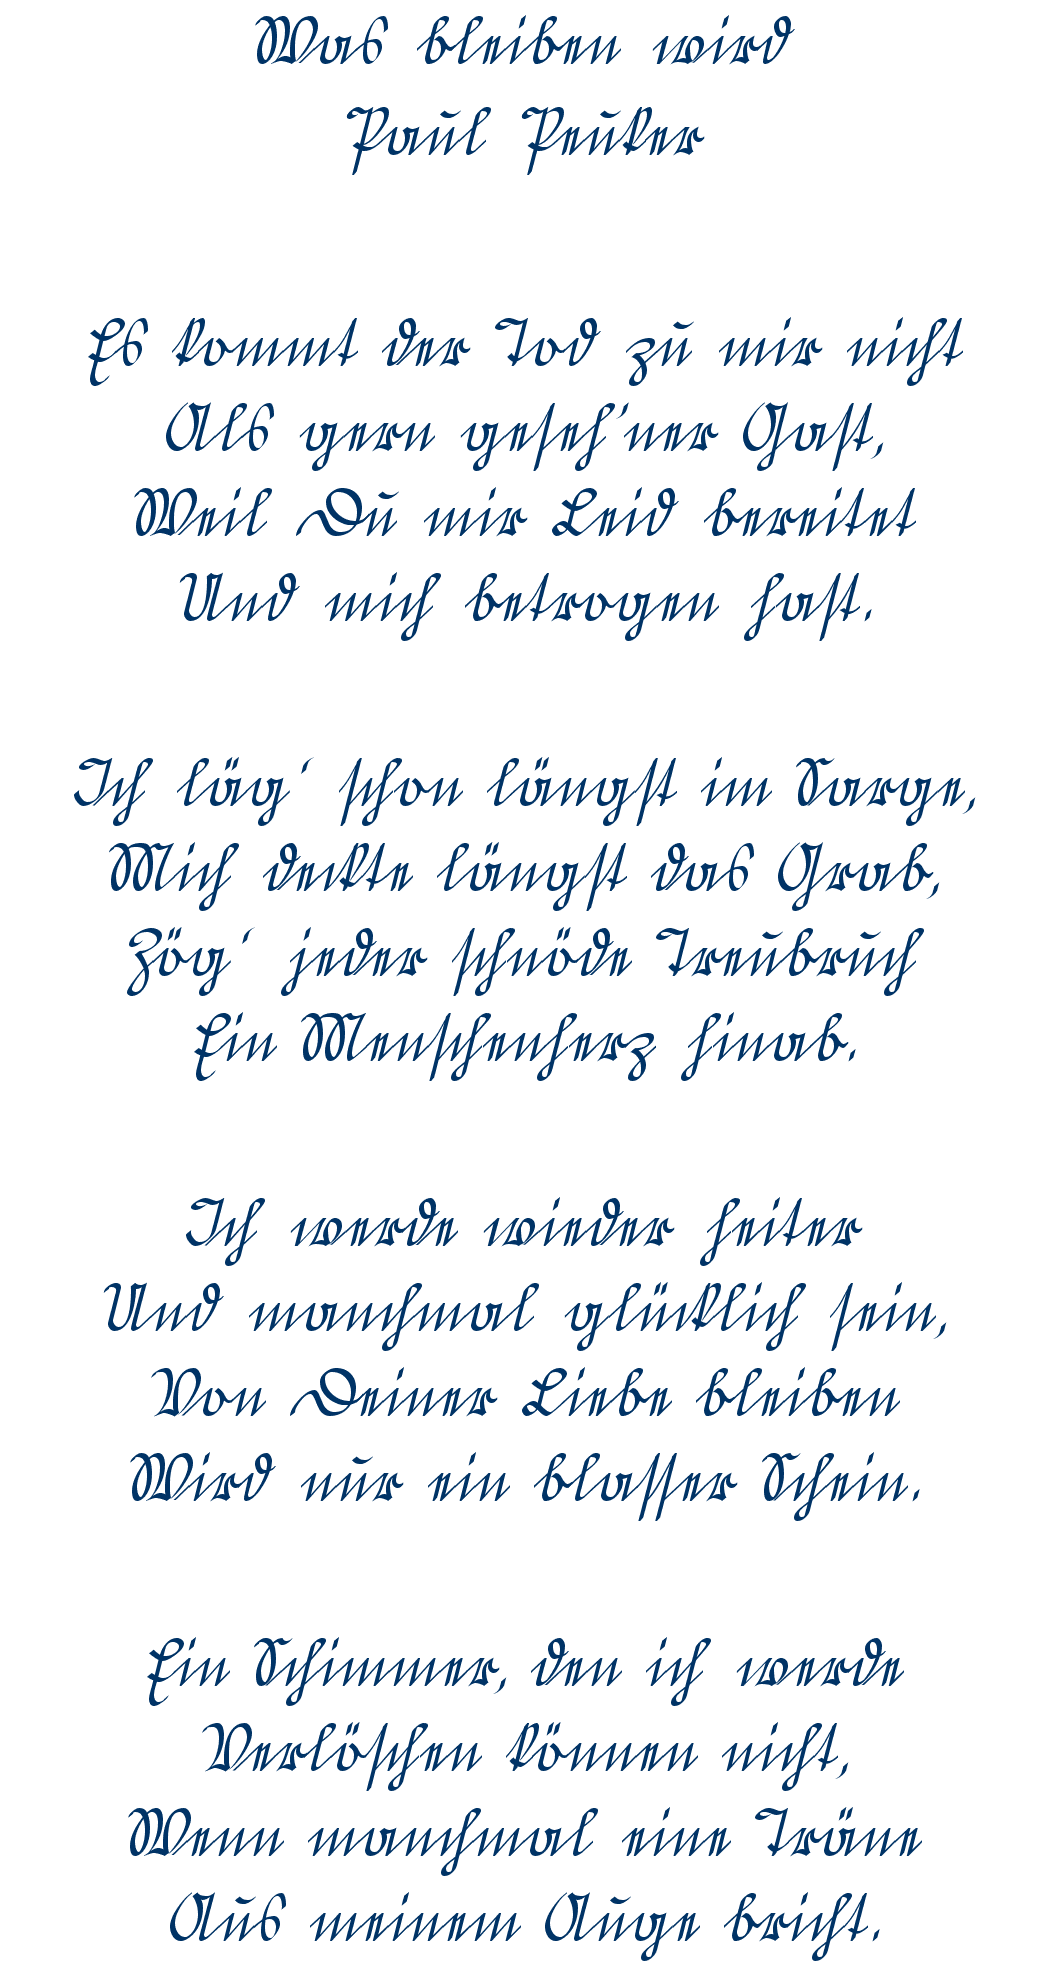 Was bleiben wird
Paul Peuker
Es kommt der Tod zu mir nicht
Als gern geseh'ner Gast,
Weil Du mir Leid bereitet
Und mich betrogen hast.
Ich läg' schon längst im Sarge,
Mich deckte längst das Grab,
Zög' jeder schnöde Treubruch
Ein Menschenherz hinab.
Ich werde wieder heiter
Und manchmal glücklich sein,
Von Deiner Liebe bleiben
Wird nur ein blasser Schein.
Ein Schimmer, den ich werde
Verlöschen können nicht,
Wenn manchmal eine Träne
Aus meinem Auge bricht.